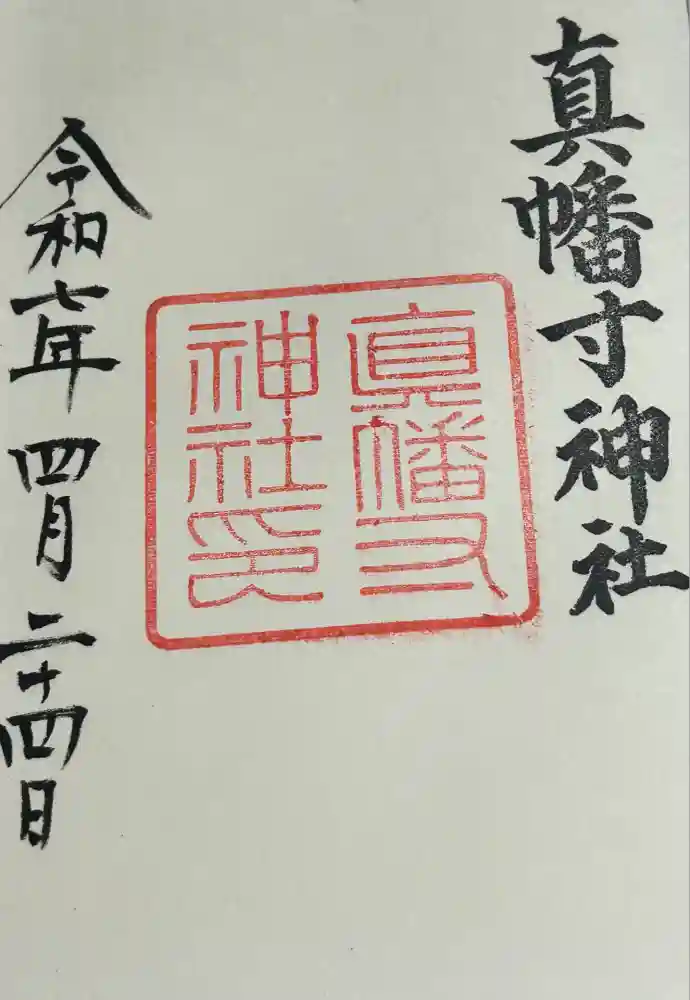 真幡寸神社
真幡寸
神社印
令和七年四月二十四日